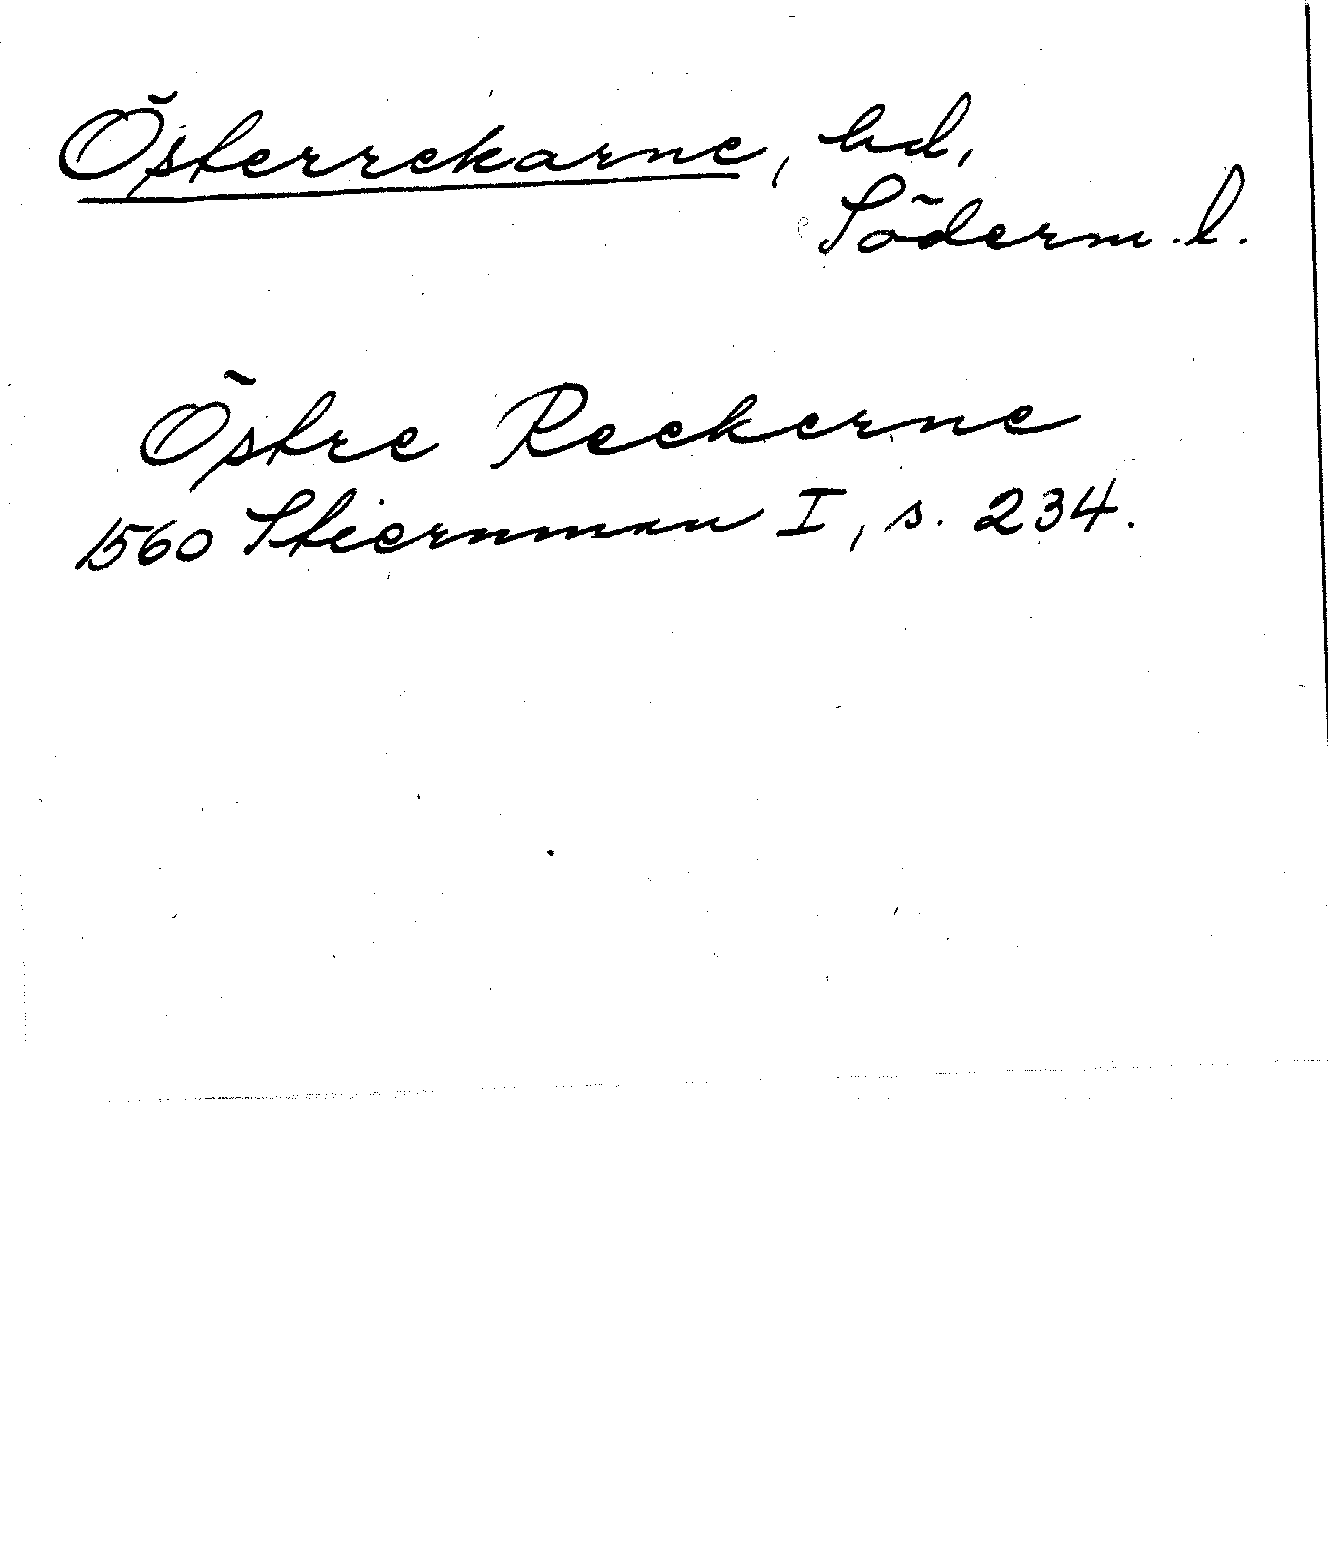 Österrekarne, hd,
Söderm. l.
Östre Reekerne
1560 Stiernman I, s. 234.